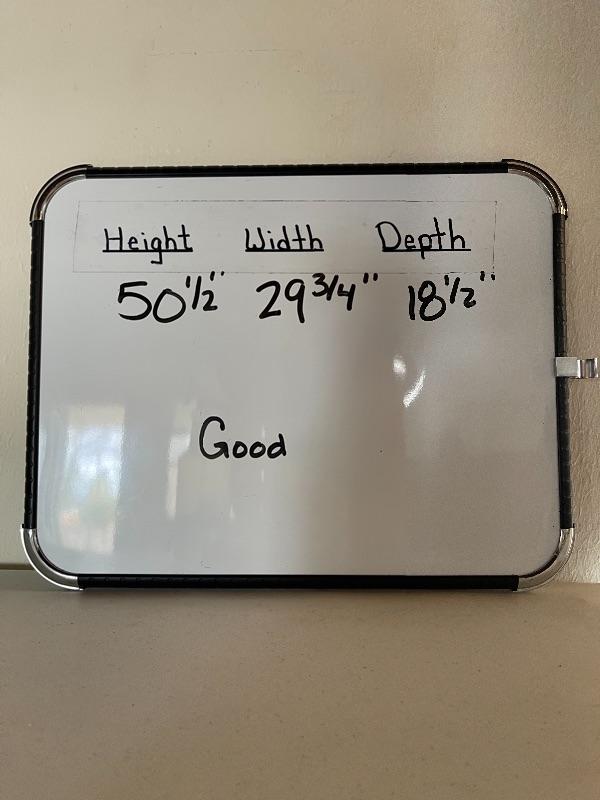 Height Width Depth
50 1/2" 29 3/4" 18 1/2"
Good